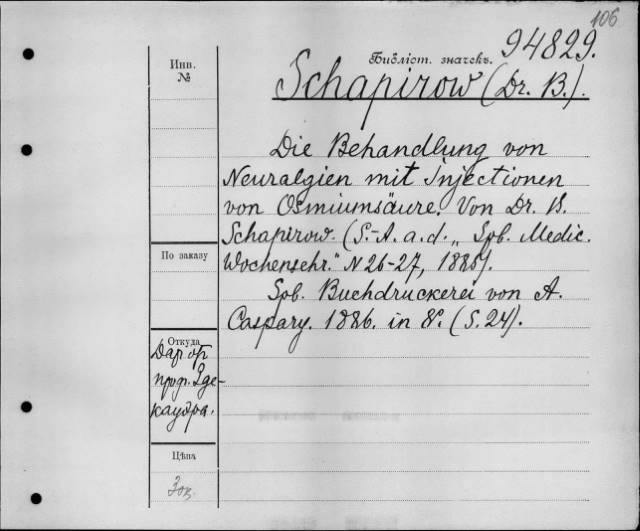 106
94829.
Инв.
№
Библіот. значекъ.
Schapirow (Dr. B.).
Die Behandlung von
Neuralgien mit Injectionen
von Osmiumsäure. Von Dr. B.
Schapirow. (S.-A. a. d. „Spb. Medic.
Wochenschr." N 26-27, 1885).
Spb. Buchdruckerei von A.
Caspary. 1886. in 8°. (S. 24).
По заказу
Откуда
Дар от
проф. Эде-
каудра.
Цѣна